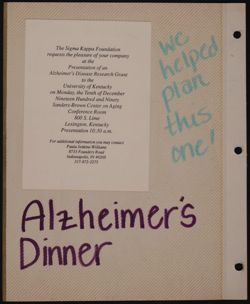 The Sigma Kappa Foundation
requests the pleasure of your company
at the
Presentation of an
Alzheimer's Disease Research Grant
to the
University of Kentucky
on Monday, the Tenth of December
Nineteen Hundred and Ninety
Sanders-Brown Center on Aging
Conference Room
800 S. Lime
Lexington, Kentucky
Presentation 10:30 a.m.
For additional information you may contact
8733 Founders Road
Indianapolis, IN 46268
317-872-3275
we
helped
plan
this
one!
Alzheimer's
Dinner